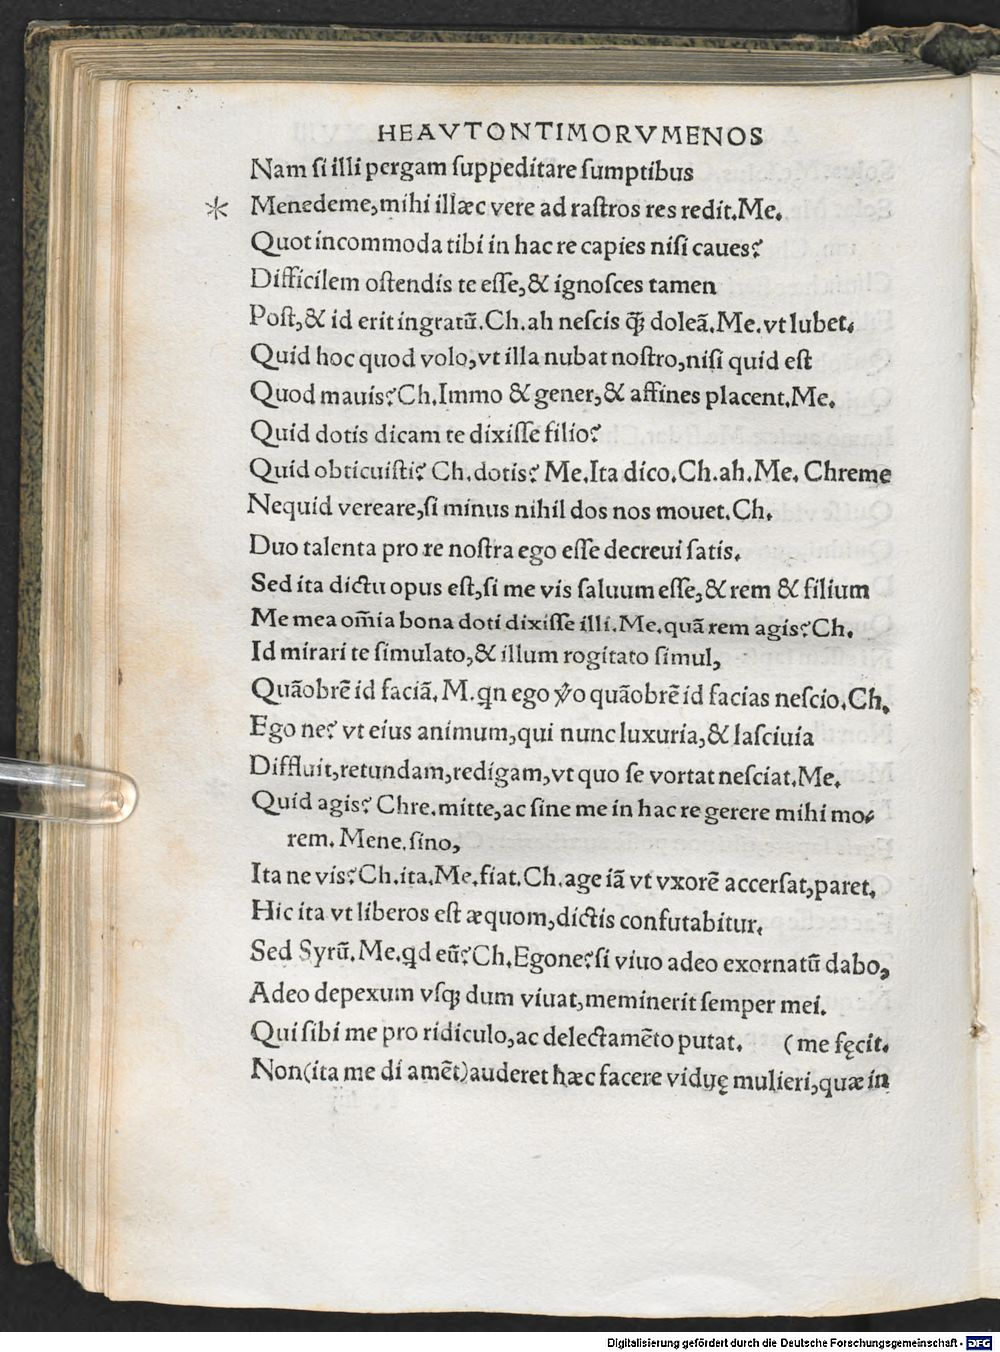 HEAVTONTIMORVMENOS
Nam ſi illi pergam ſuppeditare ſumptibus
* Menedeme,mihi illæc vere ad raſtros res redit.Me.
Quot incommoda tibi in hac re capies niſi caues?
Difficilem oſtendis te eſſe,& ignoſces tamen
Poſt,& id erit ingratū.Ch.ah neſcis ꝙ̄ doleā.Me.vt lubet.
Quid hoc quod volo,vt illa nubat noſtro,niſi quid eſt
Quod mauis?Ch.Immo & gener,& affines placent.Me.
Quid dotis dicam te dixiſſe filio?
Quid obticuiſti? Ch.dotis? Me.Ita dico.Ch.ah.Me. Chreme
Nequid vereare,ſi minus nihil dos nos mouet.Ch.
Duo talenta pro re noſtra ego eſſe decreui ſatis.
Sed ita dictu opus eſt,ſi me vis ſaluum eſſe,& rem & filium
Me mea om̄ia bona doti dixiſſe illi.Me.quā rem agis?Ch.
Id mirari te ſimulato,& illum rogitato ſimul,
Quāobrē id faciā. M.qn ego ꝟo quāobrē id facias neſcio.Ch.
Ego ne? vt eius animum,qui nunc luxuria,& laſciuia
Diffluit,retundam,redigam,vt quo ſe vortat neſciat.Me.
Quid agis? Chre.mitte,ac ſine me in hac re gerere mihi mo⸗
rem. Mene.ſino,
Ita ne vis?Ch.ita.Me.fiat.Ch.age iā vt vxorē accerſat,paret.
Hic ita vt liberos eſt æquom,dictis confutabitur.
Sed Syrū.Me.qd eū?Ch.Egone?ſi viuo adeo exornatū dabo,
Adeo depexum vſqꝫ dum viuat,meminerit ſemper mei.
Qui ſibi me pro ridiculo,ac delectamēto putat. (me fęcit.
Non(ita me di amēt)auderet hæc facere viduę mulieri,quæ in
Digitalisierung gefördert durch die Deutsche Forschungsgemeinschaft - DFG